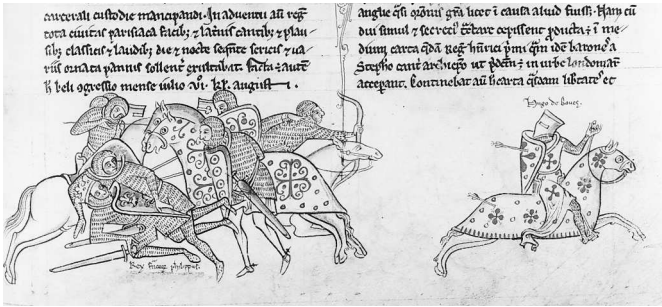 carcerali custodie mancipandi. In adventu aū reg
tota civitas parisiaca facib; ⁊ lat̄nis cantic̄ ⁊ plau-
sib; classicis ⁊ laudib; die ⁊ nocte seqn̄te sericis ⁊ ua-
riis ornata pannis
belli ɔgressio mense iulio vi. kl. augusti.
licet i causa aliud fuiss. Nam cū
diu simul ⁊ secreti tc̄tare cepissent producta ÷ i me-
dium carta q̄dam Reg henrici p̄mi idem barones a
Stepho cant archiep̄o ut p̄dc̄m ÷ in urbe londoniar
acceperant. Continebat aū h carta qsdam libtates et
Hugo de boues
Rex francie philippus.